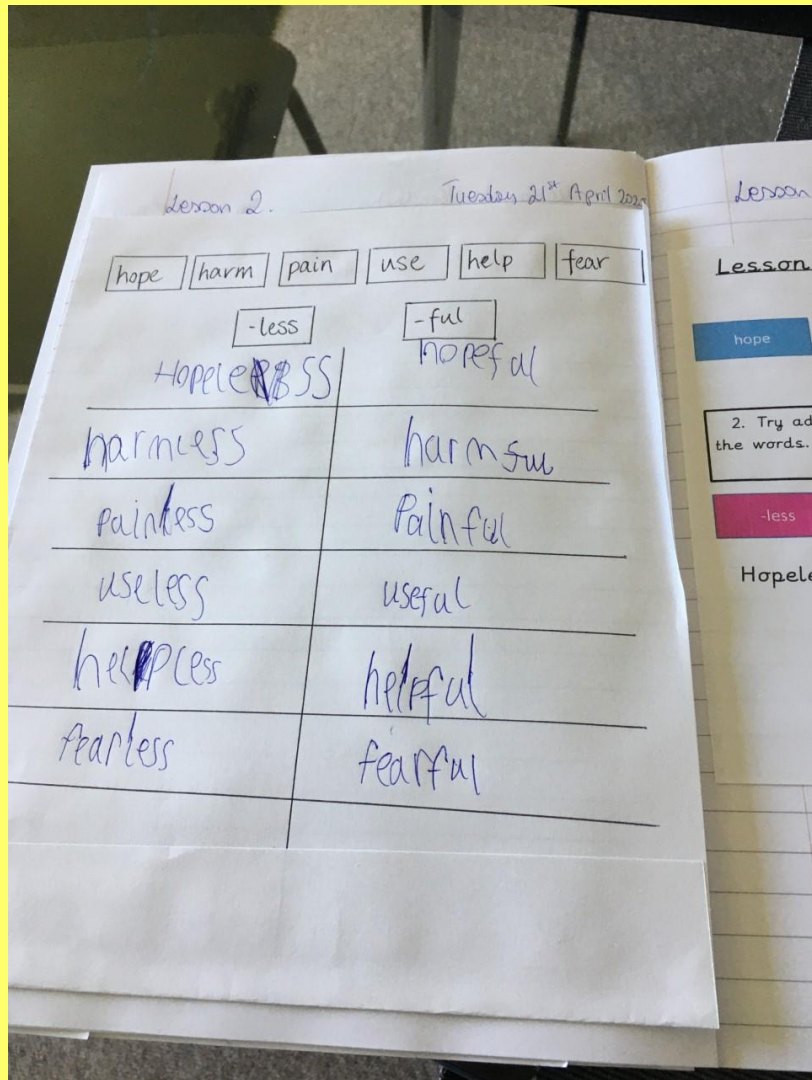 Lesson 2.
Tuesday 21st April 202
hope harm pain use help fear
-less -ful
Hopeless hopeful
harmless harmful
painless Painful
useless useful
helpless helpful
fearless fearful
Lesson
Lesson
hope
2. Try ad
the words.
-less
Hopele